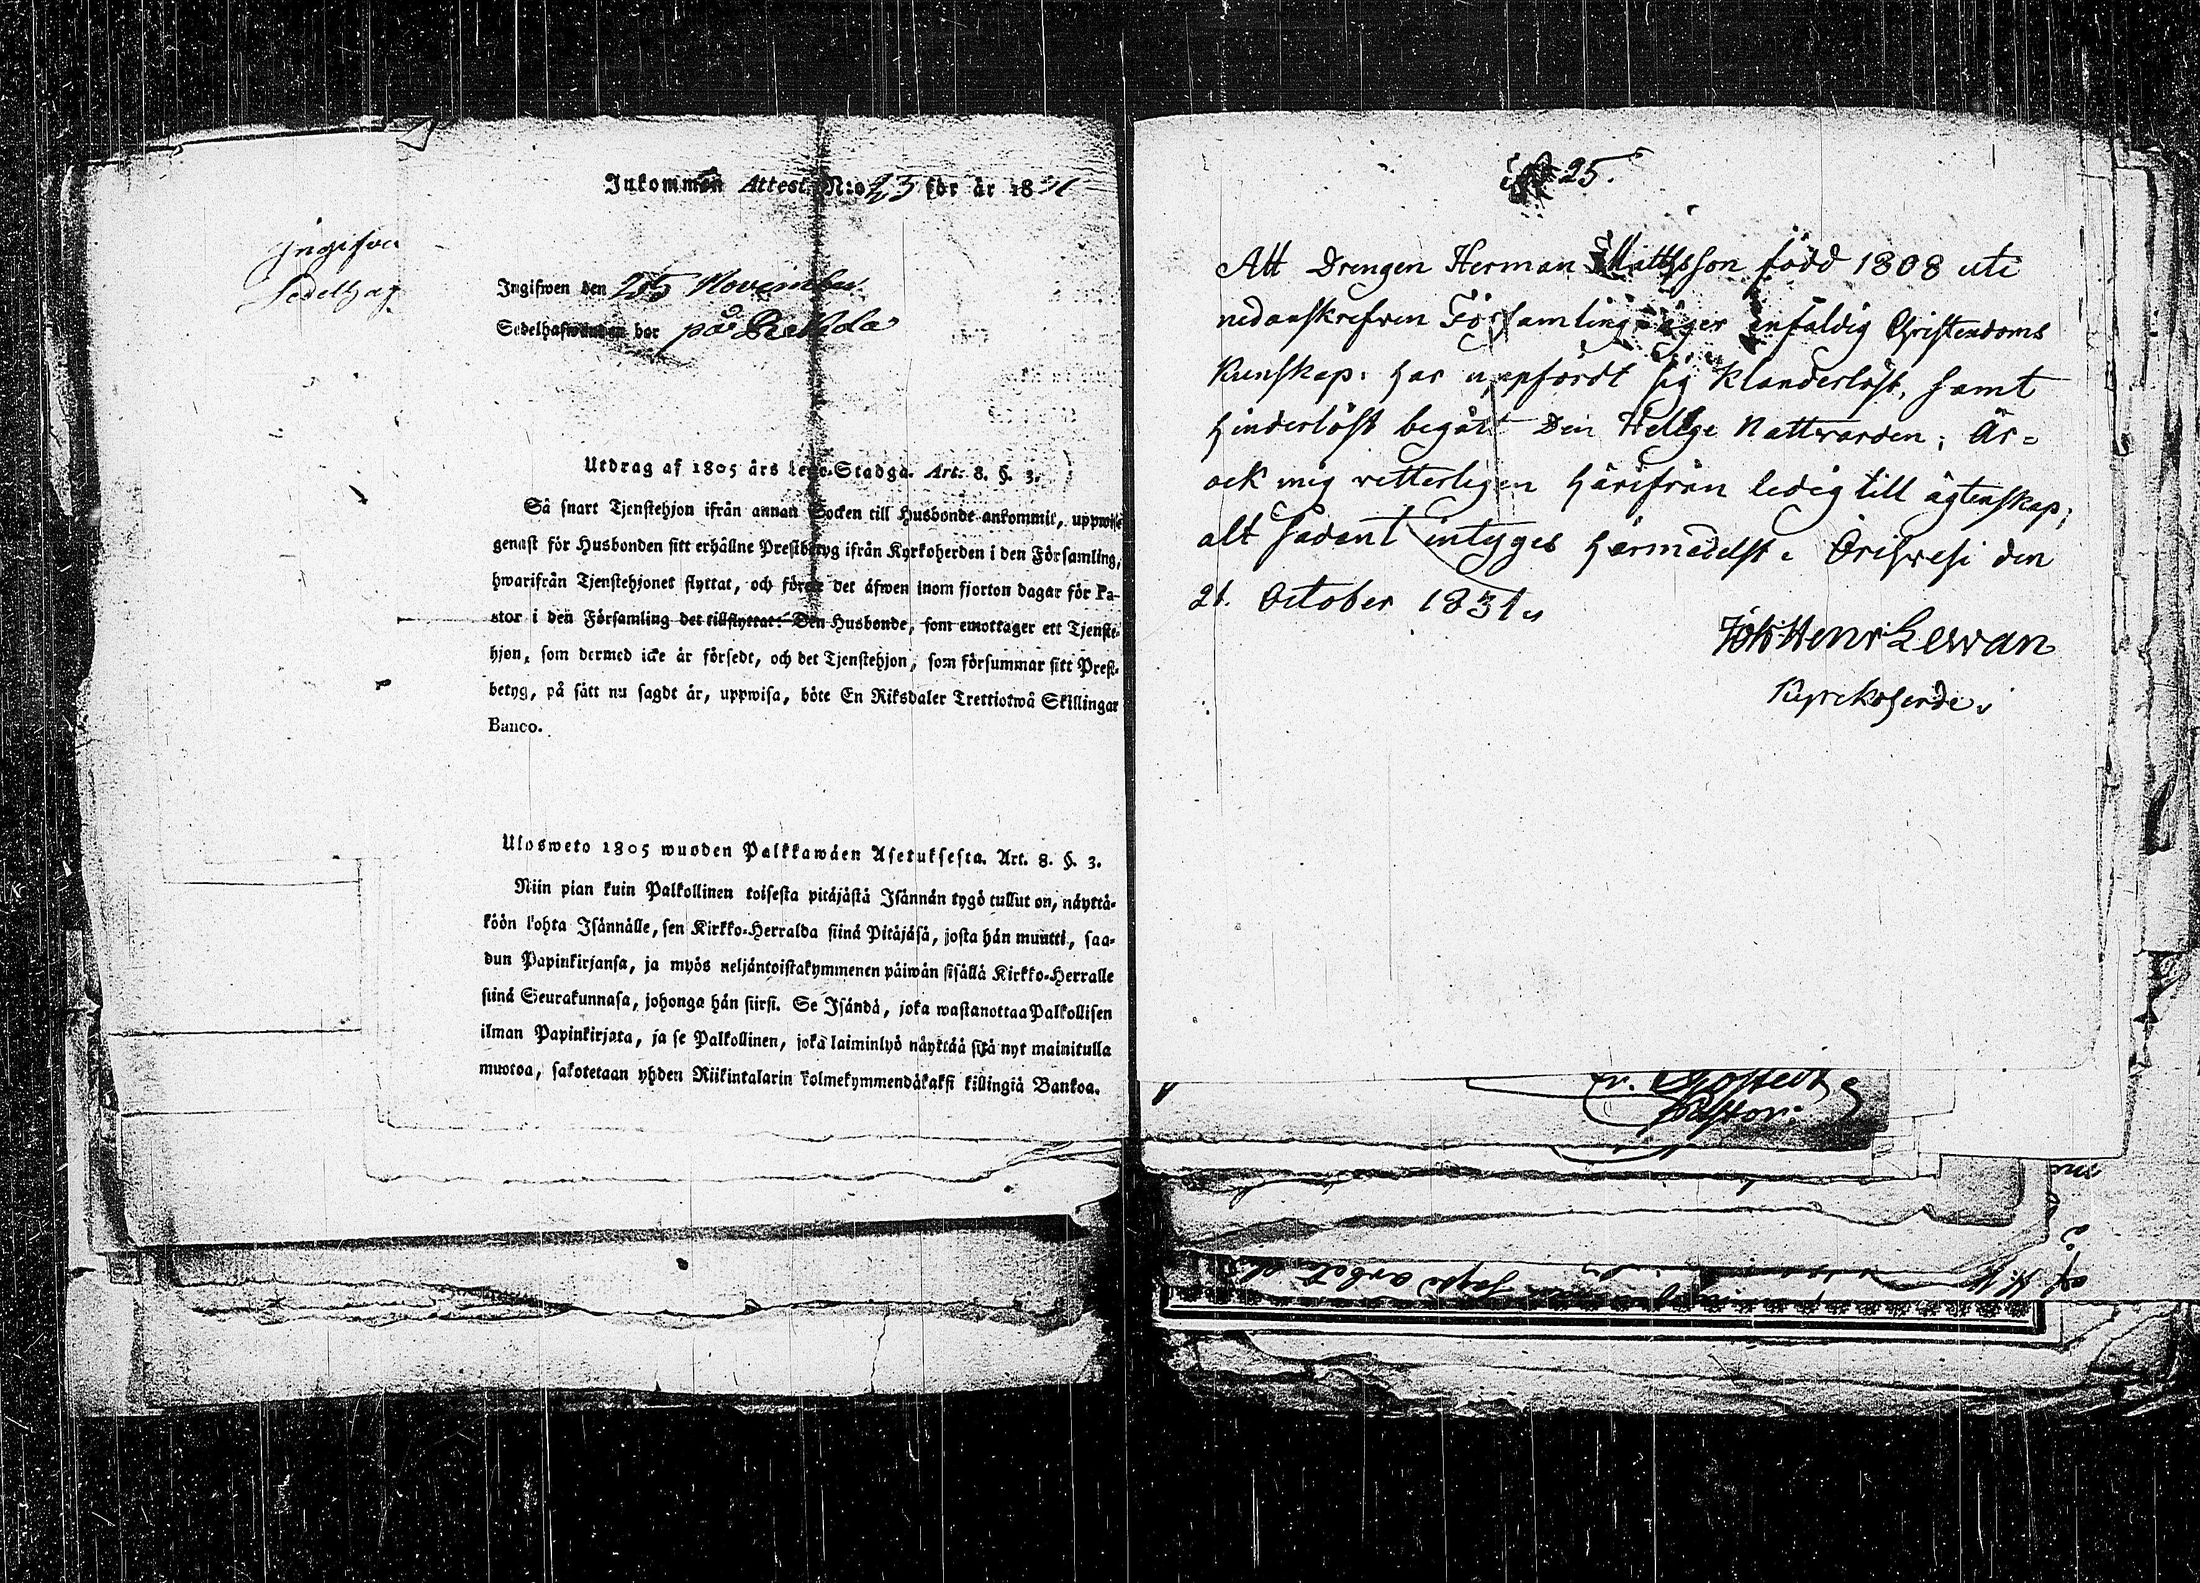 Inkommen Attest N:o 23 för år 1831
Ingifven
Sedelhaf
Ingifwen den 25 November
Sedelhafwanden bor på
Utdrag af 1805 års Lego-Stadga. Art. 8. §. 3.
Så snart Tjenstehjon ifrån annan Socken till Husbonde ankommit, uppwise
genast för Husbonden sitt erhållne Prestbetyg ifrån Kyrkoherden i den Församling,
hwarifrån Tjenstehjonet flyttat, och förete det äfwen inom fjorton dagar för Pa-
stor i den Församling det tillflyttat. Den Husbonde, som emottager ett Tjenste-
hjon, som dermed icke är försedt, och det Tjenstehjon, som försummar sitt Prest-
betyg, på sätt nu sagdt är, uppwisa, böte En Riksdaler Trettiotwå Skillingar
Banco.
Ulosweto 1805 wuoden Palkkawäen Asetuksesta. Art. 8. §. 3.
Niin pian kuin Palkollinen toisesta pitäjästä Isännän tygö tullut on, näyttä-
köön kohta Isännälle, sen Kirkko-Herralda siinä Pitäjäsä, josta hän muutti, saa-
dun Papinkirjansa, ja myös neljäntoistakymmenen päiwän sisällä Kirkko-Herralle
siinä Seurakunnasa, johonga hän siirsi. Se Isändä, joka wastanottaa Palkollisen
ilman Papinkirjata, ja se Palkollinen, joka laiminlyö näyttää sitä nyt mainitulla
muotoa, sakotetaan yhden Riikintalarin kolmekymmendäkaksi killingiä Bankoa.
25.
Att Drengen Herman Mattsson född 1808 uti
nedanskrefven Församling äger enfaldig Christendoms
Kunskap. har uppfördt sig klanderlöst, samt
hinderlöst begått Den Helige Nattvarden; Är-
ock mig vetterligen härifrån ledig till ägtenskap;
alt sådant intyges härmedelst. Orihvesi den
21. October 1831.
Joh: Henr: Lewan
Kyrckoherde.
Pastor: